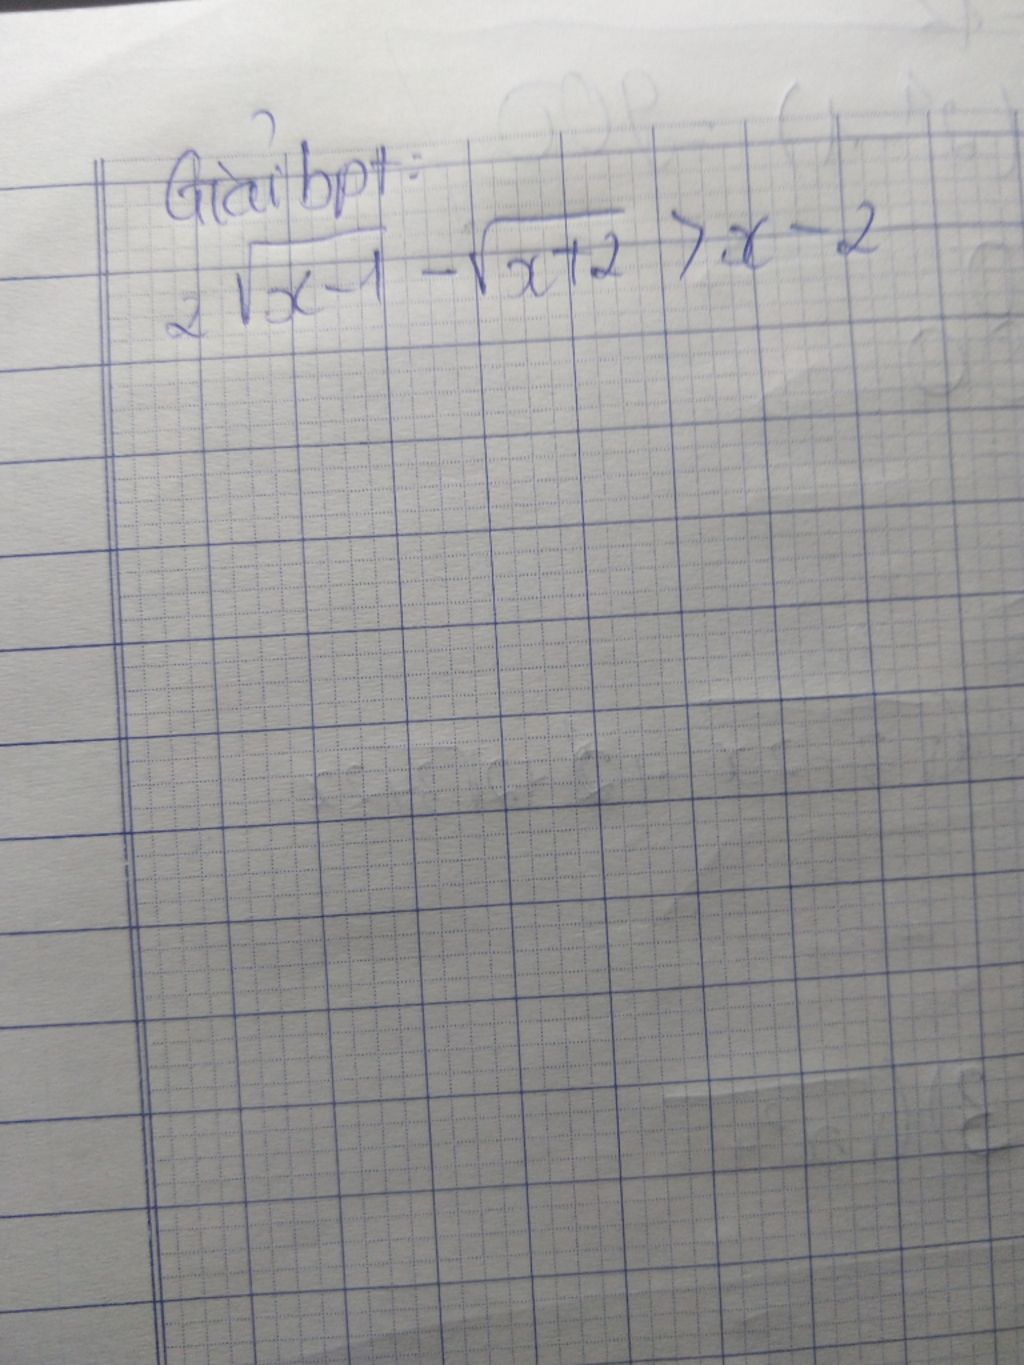 Giải bpt:
2√(x-1) - √(x+2) > x - 2